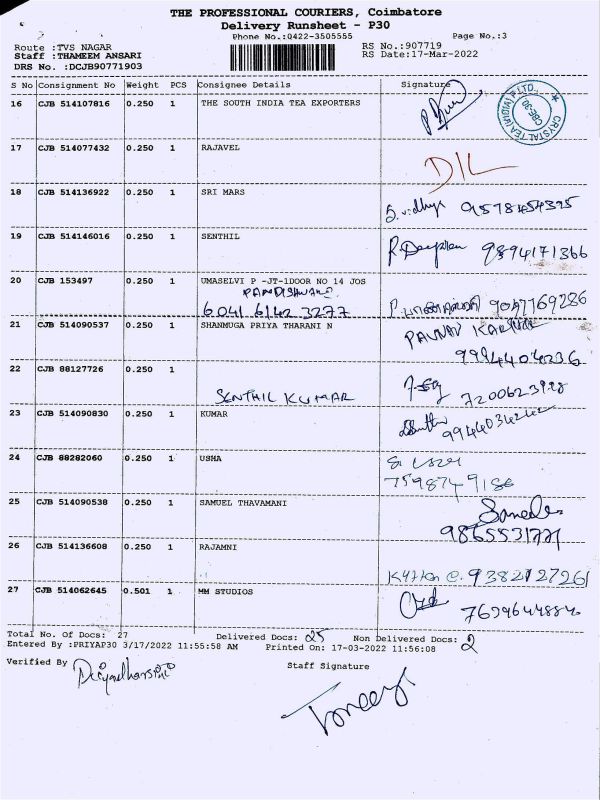 THE PROFESSIONAL COURIERS, Coimbatore
Delivery Runsheet - P30
Phone No.:0422-3505555 Page No.:3
Route :TVS NAGAR RS No.:907719
Staff :THAMEEM ANSARI RS Date:17-Mar-2022
DRS No. :DCJB90771903
S No Consignment No Weight PCS Consignee Details Signature
16 CJB 514107816 0.250 1 THE SOUTH INDIA TEA EXPORTERS
CRYSTAL TEA (INDIA) P. LTD., CBE-30
17 CJB 514077432 0.250 1 RAJAVEL
D/L
18 CJB 514136922 0.250 1 SRI MARS
9578454395
19 CJB 514146016 0.250 1 SENTHIL
9894171366
20 CJB 153497 0.250 1 UMASELVI P -JT-1DOOR NO 14 JOS
6041 6142 3277
21 CJB 514090537 0.250 1 SHANMUGA PRIYA THARANI N
9944404236
22 CJB 88127726 0.250 1
SENTHIL KUMAR
23 CJB 514090830 0.250 1 KUMAR
24 CJB 88282060 0.250 1 USHA
7598749186
25 CJB 514090538 0.250 1 SAMUEL THAVAMANI
9865531771
26 CJB 514136608 0.250 1 RAJAMNI
9382127261
27 CJB 514062645 0.501 1 MM STUDIOS
Total No. Of Docs: 27 Delivered Docs: 25 Non Delivered Docs: 2
Entered By :PRIYAP30 3/17/2022 11:55:58 AM Printed On: 17-03-2022 11:56:08
Verified By Staff Signature